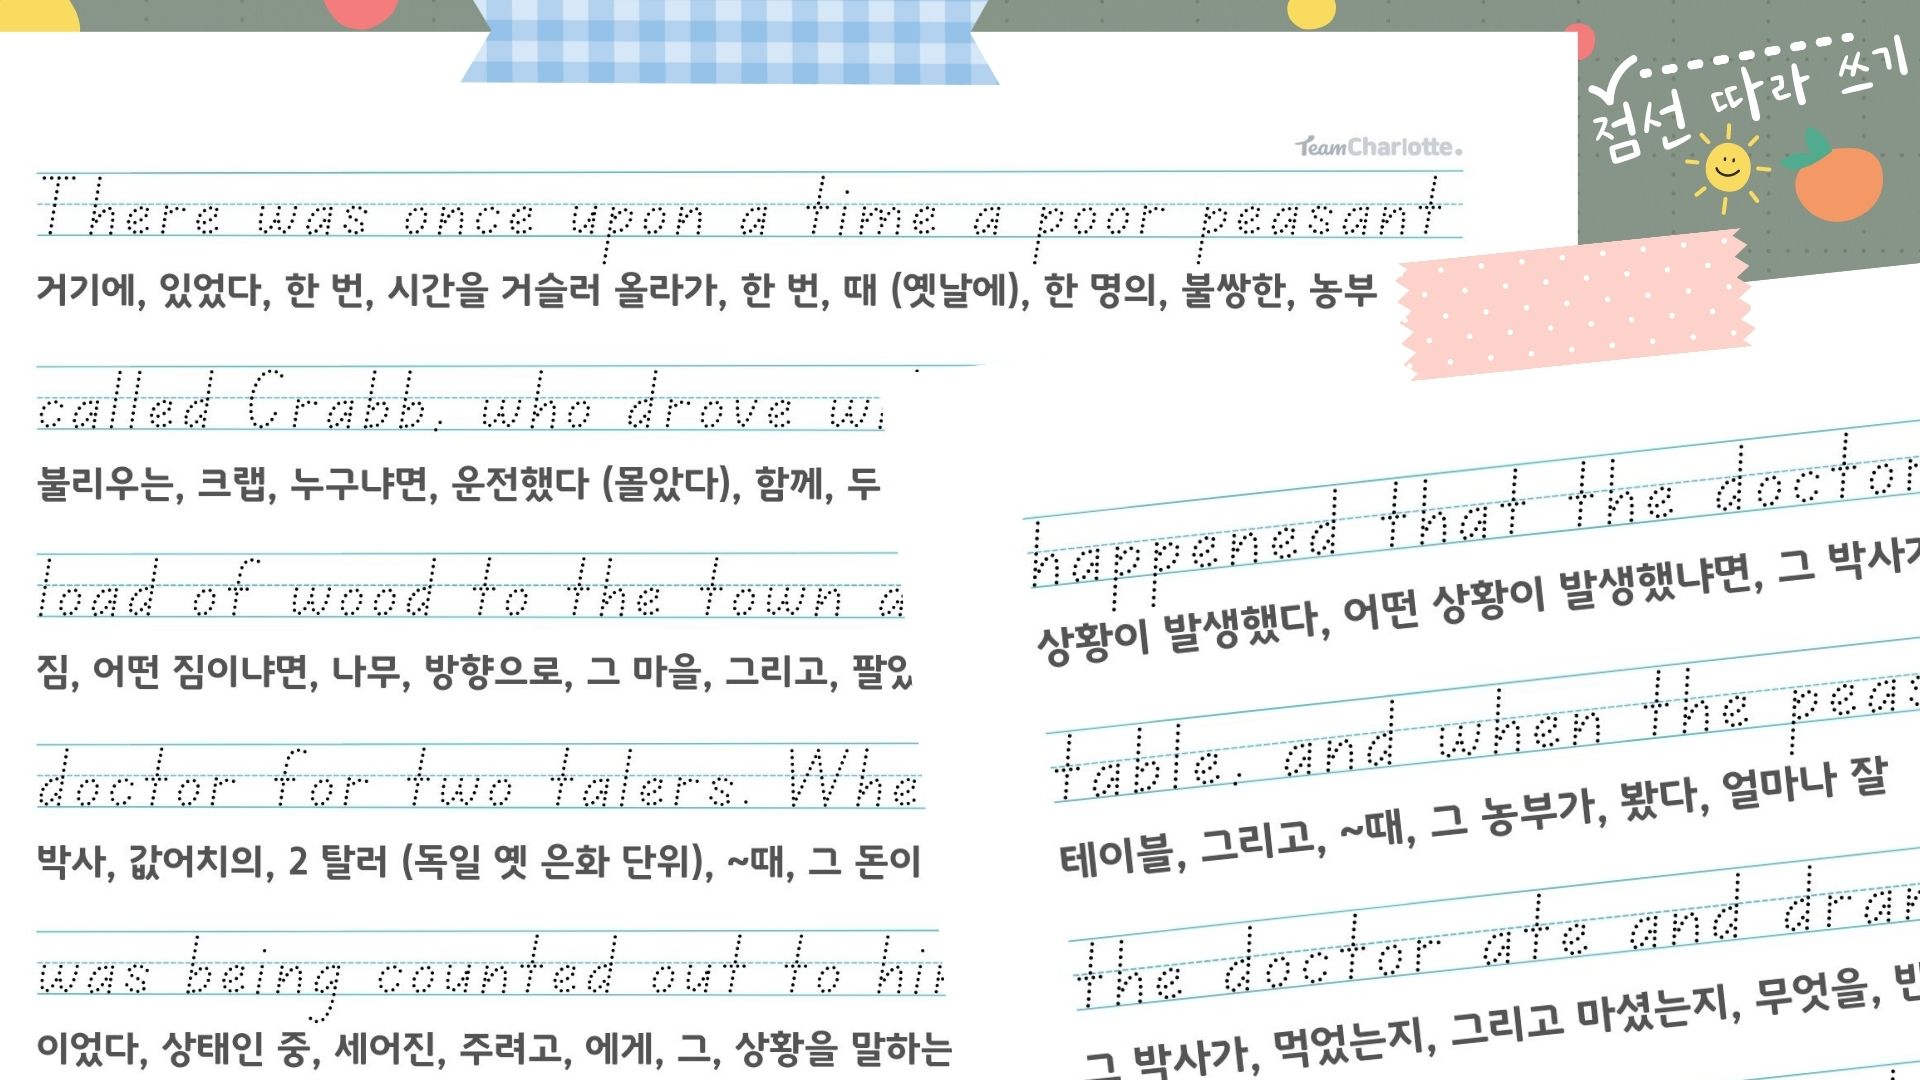 점선 따라 쓰기
TeamCharlotte.
There was once upon a time a poor peasant
거기에, 있었다, 한 번, 시간을 거슬러 올라가, 한 번, 때 (옛날에), 한 명의, 불쌍한, 농부
called Crabb, who drove
불리우는, 크랩, 누구냐면, 운전했다 (몰았다), 함께, 두
load of wood to the town a
짐, 어떤 짐이냐면, 나무, 방향으로, 그 마을, 그리고,
doctor for two talers. Whe
박사, 값어치의, 2 탈러 (독일 옛 은화 단위), ~때, 그 돈이
was being counted out to
이었다, 상태인 중, 세어진, 주려고, 에게, 그, 상황을 말하는
happened that the doctor
상황이 발생했다, 어떤 상황이 발생했냐면, 그 박사가
table, and when the peas
테이블, 그리고, ~때, 그 농부가, 봤다, 얼마나 잘
the doctor ate and dran
그 박사가, 먹었는지, 그리고 마셨는지, 무엇을,